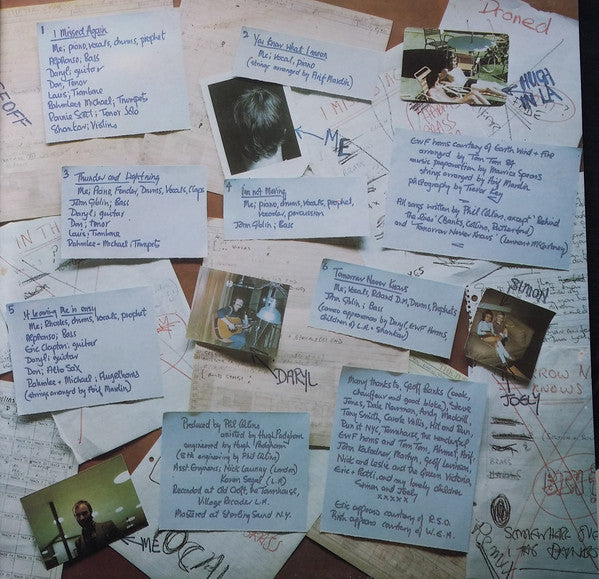 1 I Missed Again
Me; piano, vocals, drums, prophet
Alphonso; Bass
Daryl; guitar
Don; Tenor
Louis; Trombone
Rahmlee + Michael; Trumpets
Ronnie Scott; Tenor Solo
Shankar; Violins
2 You Know What I mean
Me; Vocal, piano
(strings arranged by Arif Mardin)
Droned
HUGH
IN LA
ME
3 Thunder and Lightning
Me; Piano, Fender, Drums, Vocals, Claps
John Giblin; Bass
Daryl; guitar
Don; Tenor
Louis; Trombone
Rahmlee + Michael; Trumpets
4 I'm not Moving
Me; piano, drums, vocals, prophet,
vocoder, percussion
John Giblin; Bass
EWF Horns courtesy of Earth Wind + Fire
arranged by Tom Tom 84
music preparation by Maurice Spears
strings arranged by Arif Mardin
photography by Trevor Key
All songs written by Phil Collins, except "Behind
the Lines" (Banks, Collins, Rutherford)
and "Tomorrow Never Knows" (Lennon + McCartney)
IN TH
5 If Leaving Me is easy
Me; Rhodes, drums, vocals, prophet
Alphonso; Bass
Eric Clapton; guitar
Daryl; guitar
Don; Alto Sax
Rahmlee + Michael; Flugelhorns
(strings arranged by Arif Mardin)
DARYL
6 Tomorrow Never Knows
Me; Vocals, Roland D.M, Drums, Prophets
John Giblin; Bass
(cameo appearances by Daryl, EWF Horns,
Children of L.A. + Shankar)
SIMON
JOELY
ROW N
KNOWS
Produced by Phil Collins
assisted by Hugh Padgham
engineered by Hugh Padgham
(8tk engineering by Phil Collins)
Asst. Engineers; Nick Launay (London)
Karen Segal (L.A)
Recorded at Old Croft, the Townhouse,
Village Recorder L.A.
Mastered at Sterling Sound N.Y.
Many thanks to, Geoff Banks (cook,
chauffeur and good bloke), Steve
Jones, Dale Newman, Andy Mackrill,
Tony Smith, Carole Willis, Hit and Run,
Dun at NYC, Townhouse, the wonderful
EWF horns and Tom Tom, Ahmet, Arif
John Kalodner, Martyn, Geoff Levinson,
Nick and Leslie and the Queen Victoria,
Eric + Patti, and my lovely children
Simon and Joely
xxxxxx
Eric appears courtesy of R.S.O.
Phil appears courtesy of W.E.A.
ME